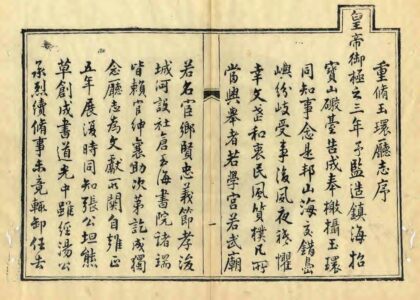 重修玉環廳志序
皇帝御極之三年予監造鎮海招
寶山礮臺告成奉檄攝玉環
同知事念是邦山海交錯島
嶼紛岐受事後夙夜祗懼
幸文武和衷民風質樸凡所
當興舉者若學宮若武廟
若名宦鄉賢忠義節孝浚
城河設社倉多海書院諸瑞
皆賴官紳襄助次第訖成獨
念廳志為文獻所關自雍正
五年展復時同知張公坦熊
草創成書道光中雖經湯公
承烈續脩事未竟輒卸任去